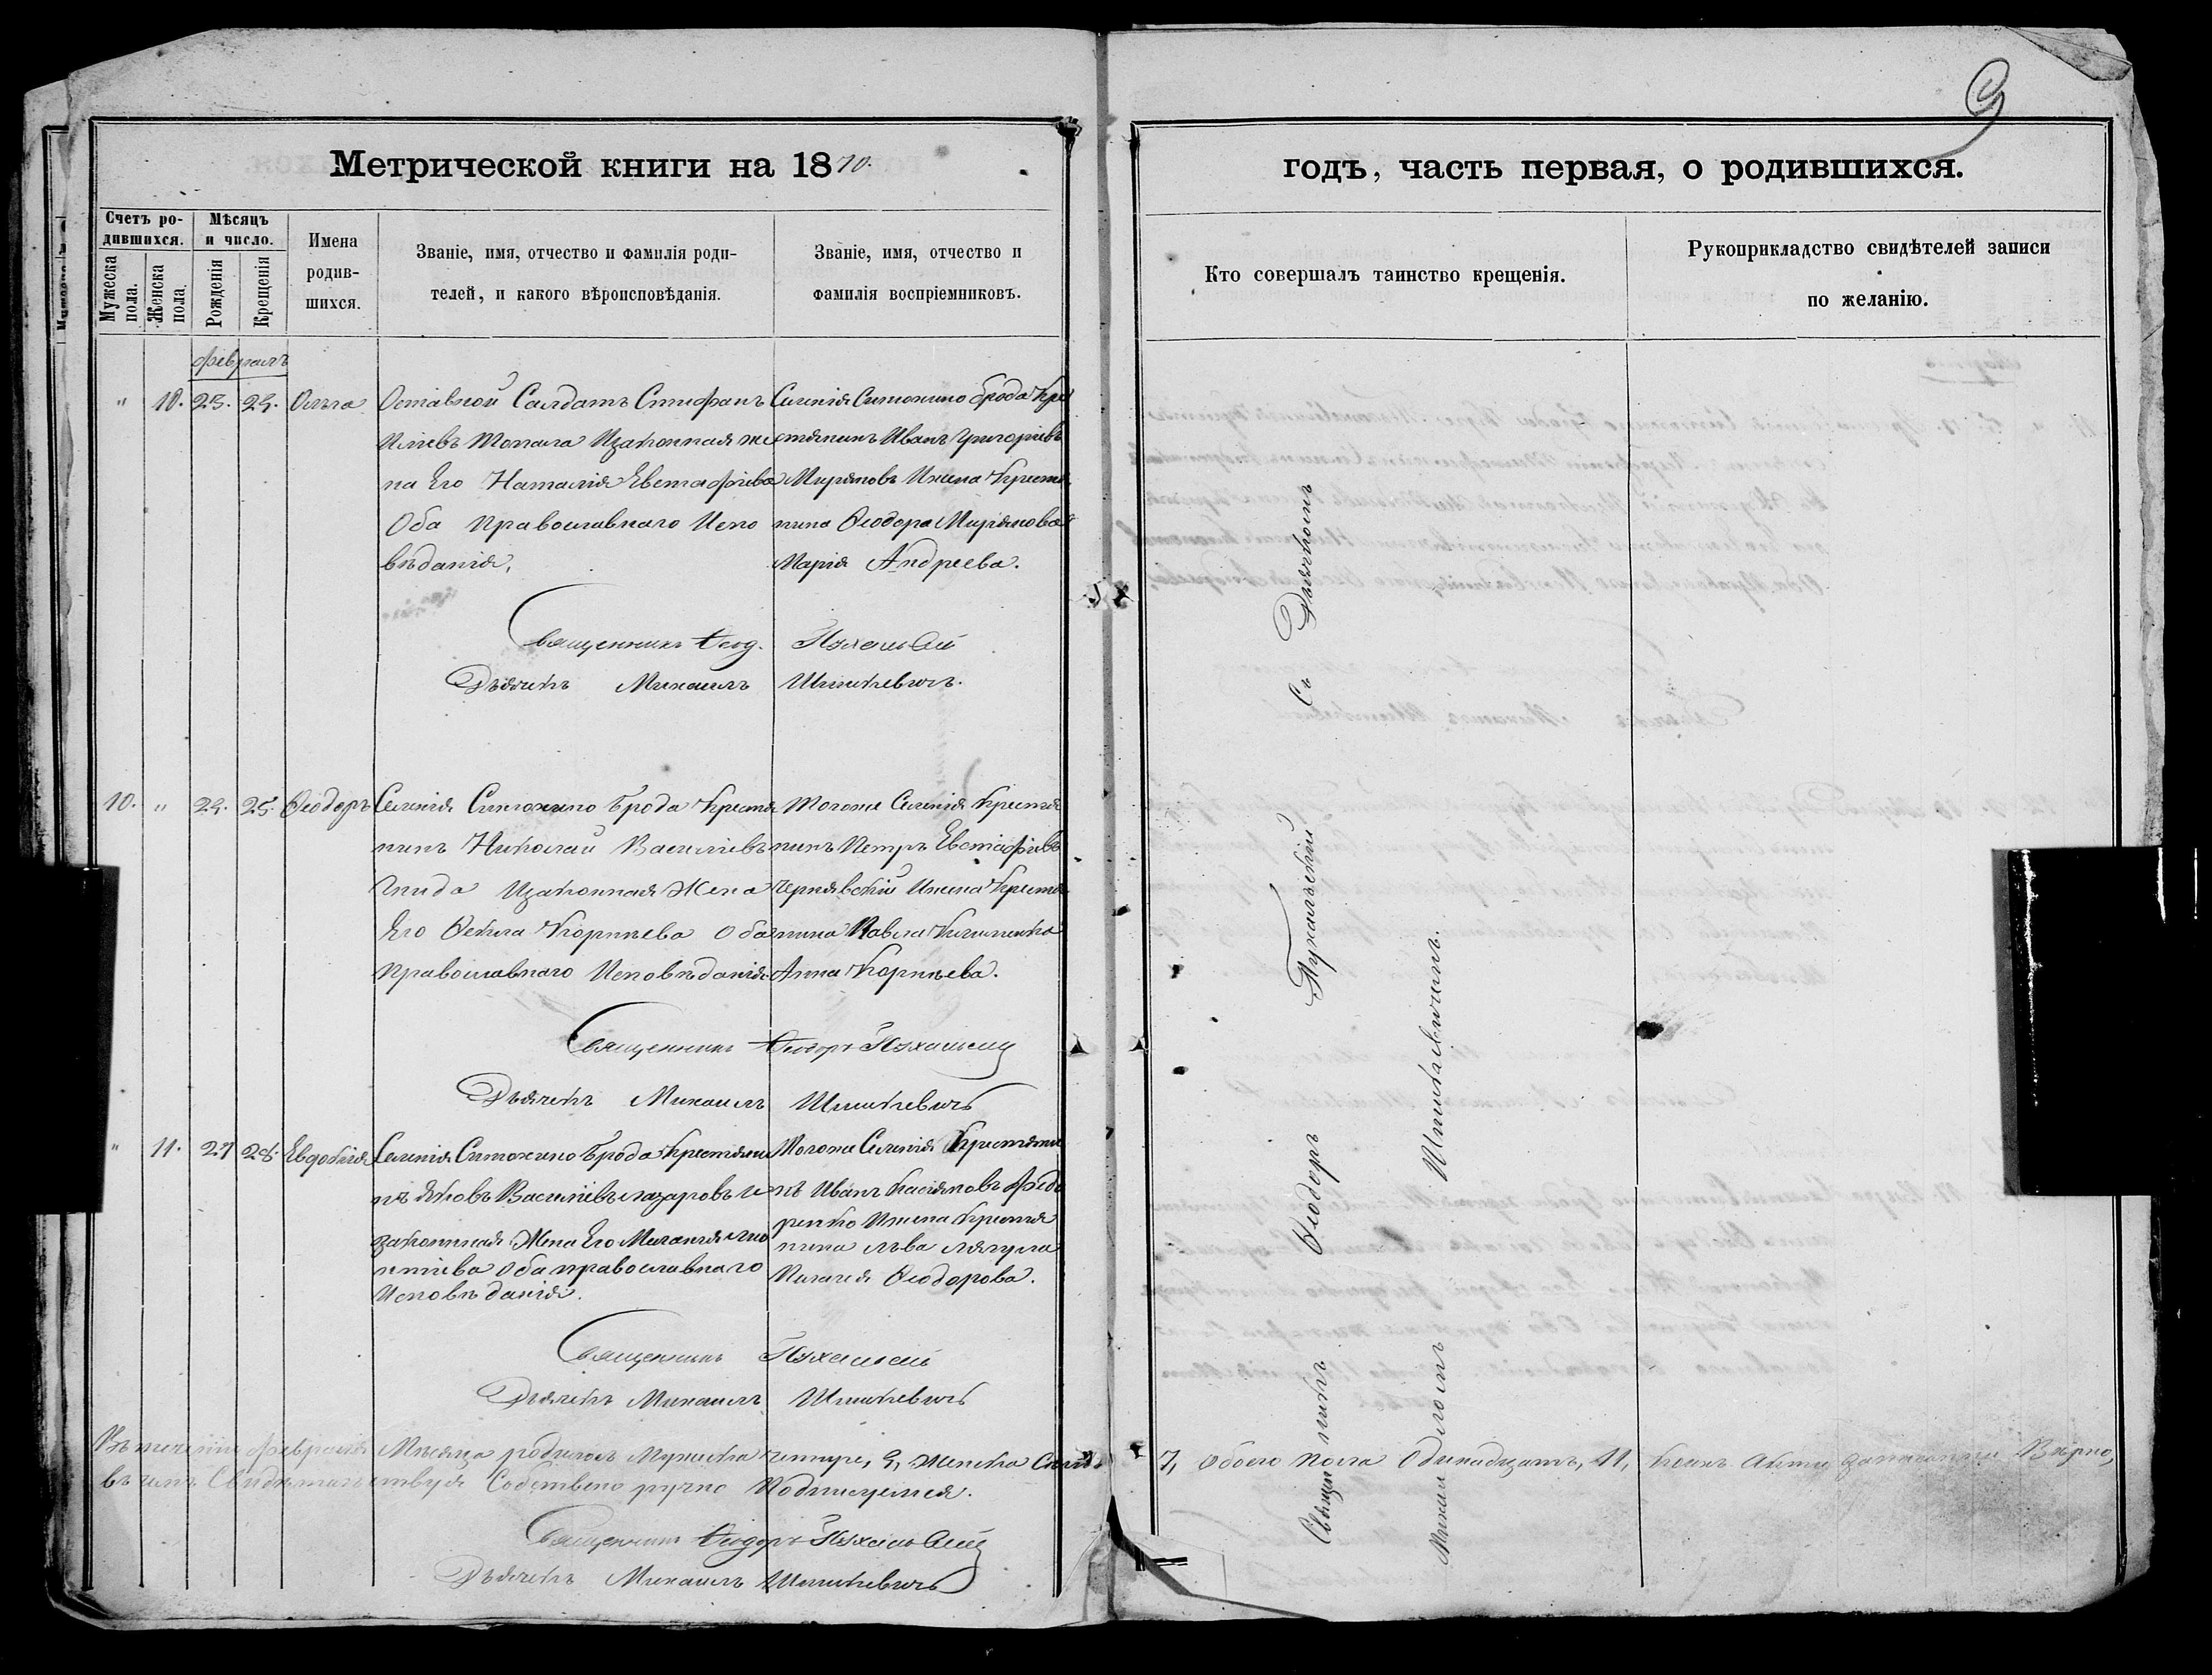 9
Метрической книги на 1870.
годъ, часть первая, о родившихся.
Счетъ ро-
дившихся.
Мужеска пола.
Женска пола.
Мѣсяцъ
и число.
Рожденія
Крещенія
Имена
родив-
шихся.
Званіе, имя, отчество и фамилія роди-
телей, и какого вѣроисповѣданія.
Званіе, имя, отчество и
фамилія воспріемниковъ.
Кто совершалъ таинство крещенія.
Рукоприкладство свидѣтелей записи
по желанію.
февраль
" 10. 23. 24. Ольга
Оставной Салдатъ Стефанъ
Иліевъ Изаконная же
на Его Наталія Евстафіева
Оба православнаго Испо
вѣданія,
Селенія Ситонино брода Кре
стянинъ Иванъ Григоріевъ
Миряновъ Ижена Крестя
нина Ѳеодора Мирянова
Марія Андреева.
Священникъ Ѳеод. Пухальскій
Дьячекъ Михаилъ Шишкевичъ.
10. " 24. 25. Ѳеодоръ
Селенія Ситонино брода Крестя
нинъ Николай Василіевъ
Гнида Изаконная Жена
Его Ѳекла Корніева Оба
православнаго Исповѣданія
Тогоже Селенія Крестя
нинъ Петръ Евстафіевъ
Чернявскій Ижена Крестя
нина Павла Клименка
Анна Корніева.
Священникъ Ѳеодоръ Пухальскій
Дьячекъ Михаилъ Шишкевичъ
" 11. 27 28. Евдокія
Селенія Ситонино брода Крестяни
нъ Яковъ Василіевъ Лазаровъ и
законная Жена Его Меланія Лео
нтіева Оба православнаго
Исповѣданія.
Тогоже Селенія Крестяни
нъ Иванъ Касіяновъ Федо
ренко Ижена Крестя
нина Льва
Пелагія Ѳеодорова.
Священникъ Пухальскій
Дьячекъ Михаилъ Шишкевичъ
Въ теченіи февраля Мѣсяца родилось Мужеска четыре, 4, Женска Семь 7, обоего пола Одинадцать, 11, коихъ Акты записанны Вѣрно,
въ чемъ Свидѣтельствуя Собствено ручно Подписуемся.
Священникъ Ѳеодоръ Пухальскій
Дьячекъ Михаилъ Шишкевичъ
Священникъ Ѳеодоръ Пухальскій Съ Дьячкомъ
Михаиломъ Шишкевичемъ.